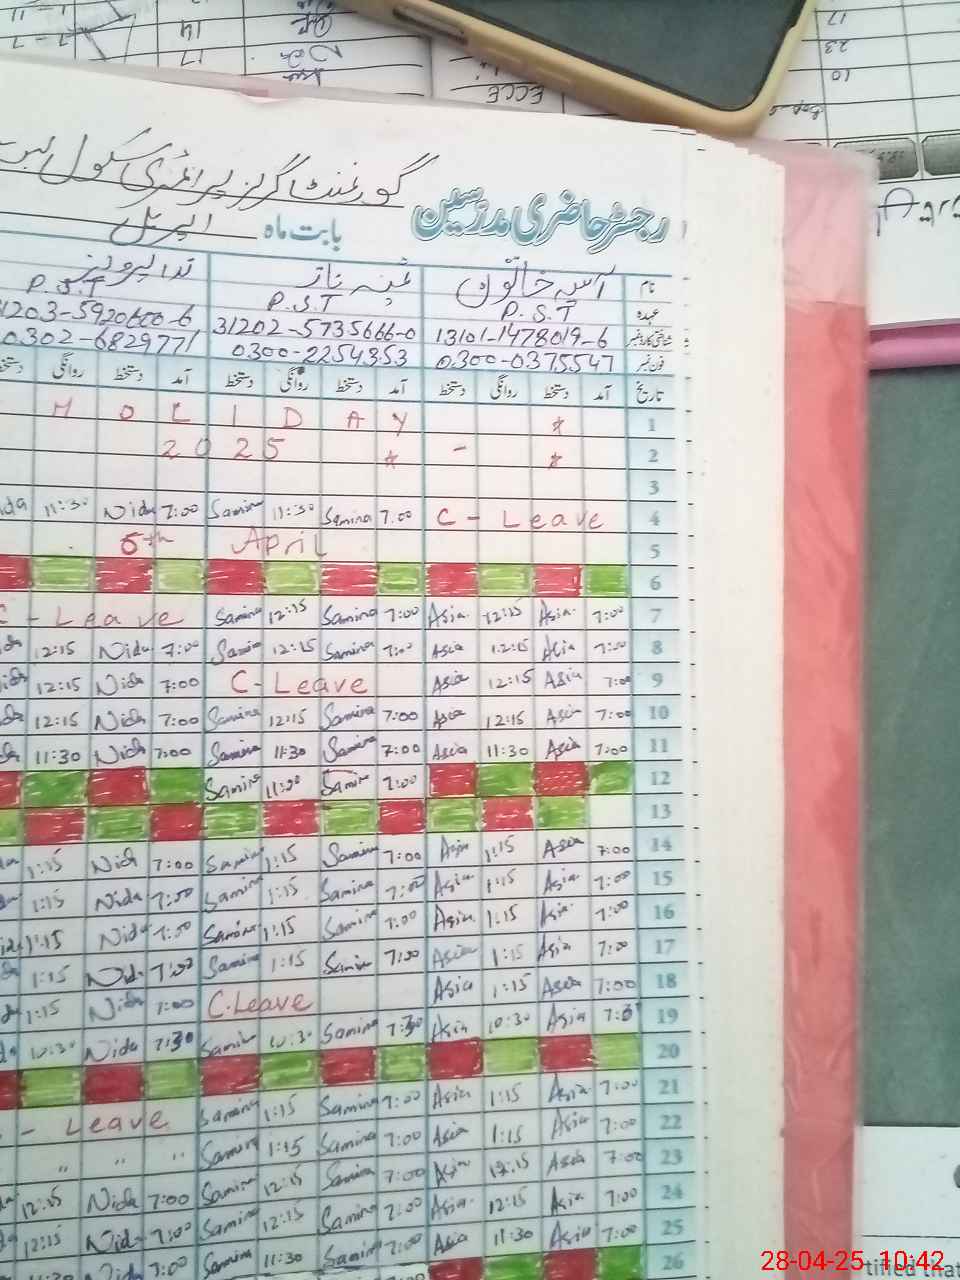 گورنمنٹ گرلز پرائمری سکول
رجسٹر حاضری مدرسین بابت ماہ اپریل
نام آسیہ خاتون ثمینہ ناز ندا پرویز
عہدہ P.S.T P.S.T P.S.T
شناختی کارڈ نمبر 13101-1478019-6 31202-5735666-0 1203-5920600-6
فون نمبر 0300-0375547 0300-2254353 0302-6829771
تاریخ آمد دستخط روانگی دستخط آمد دستخط روانگی دستخط آمد دستخط روانگی
HOLIDAY * 1
2025 * - * 2
3
11:30 Nida 7:00 Samina 11:30 Samina 7:00 C-Leave 4
5th April 5
6
C-Leave Samina 12:15 Samina 7:00 Asia 12:15 Asia 7:00 7
12:15 Nida 7:00 Samina 12:15 Samina 7:00 Asia 12:15 Asia 7:00 8
12:15 Nida 7:00 C-Leave Asia 12:15 Asia 7:00 9
12:15 Nida 7:00 Samina 12:15 Samina 7:00 Asia 12:15 Asia 7:00 10
11:30 Nida 7:00 Samina 11:30 Samina 7:00 Asia 11:30 Asia 7:00 11
Samina Samina 7:00 12
13
1:15 Nida 7:00 Samina 1:15 Samina 7:00 Asia 1:15 Asia 7:00 14
1:15 Nida 7:00 Samina 1:15 Samina 7:00 Asia 1:15 Asia 7:00 15
1:15 Nida 7:00 Samina 1:15 Samina 7:00 Asia 1:15 Asia 7:00 16
1:15 Nida 7:00 Samina 1:15 Samina 7:00 Asia 1:15 Asia 7:00 17
1:15 Nida 7:00 C.Leave Asia 1:15 Asia 7:00 18
10:30 Nida 7:30 Samina 10:30 Samina 7:30 Asia 10:30 Asia 7:30 19
20
- Leave Samina 1:15 Samina 7:00 Asia 1:15 Asia 7:00 21
" " " Samina 1:15 Samina 7:00 Asia 1:15 Asia 7:00 22
12:15 Nida 7:00 Samina 12:15 Samina 7:00 Asia 12:15 Asia 7:00 23
12:15 Nida 7:00 Samina 12:15 Samina 7:00 Asia 12:15 Asia 7:00 24
11:30 Nida 7:00 Samina 11:30 Samina 7:00 Asia 11:30 Asia 7:00 25
26
ECCE
14
17
17
23
10
28-04-25 10:42
tified that